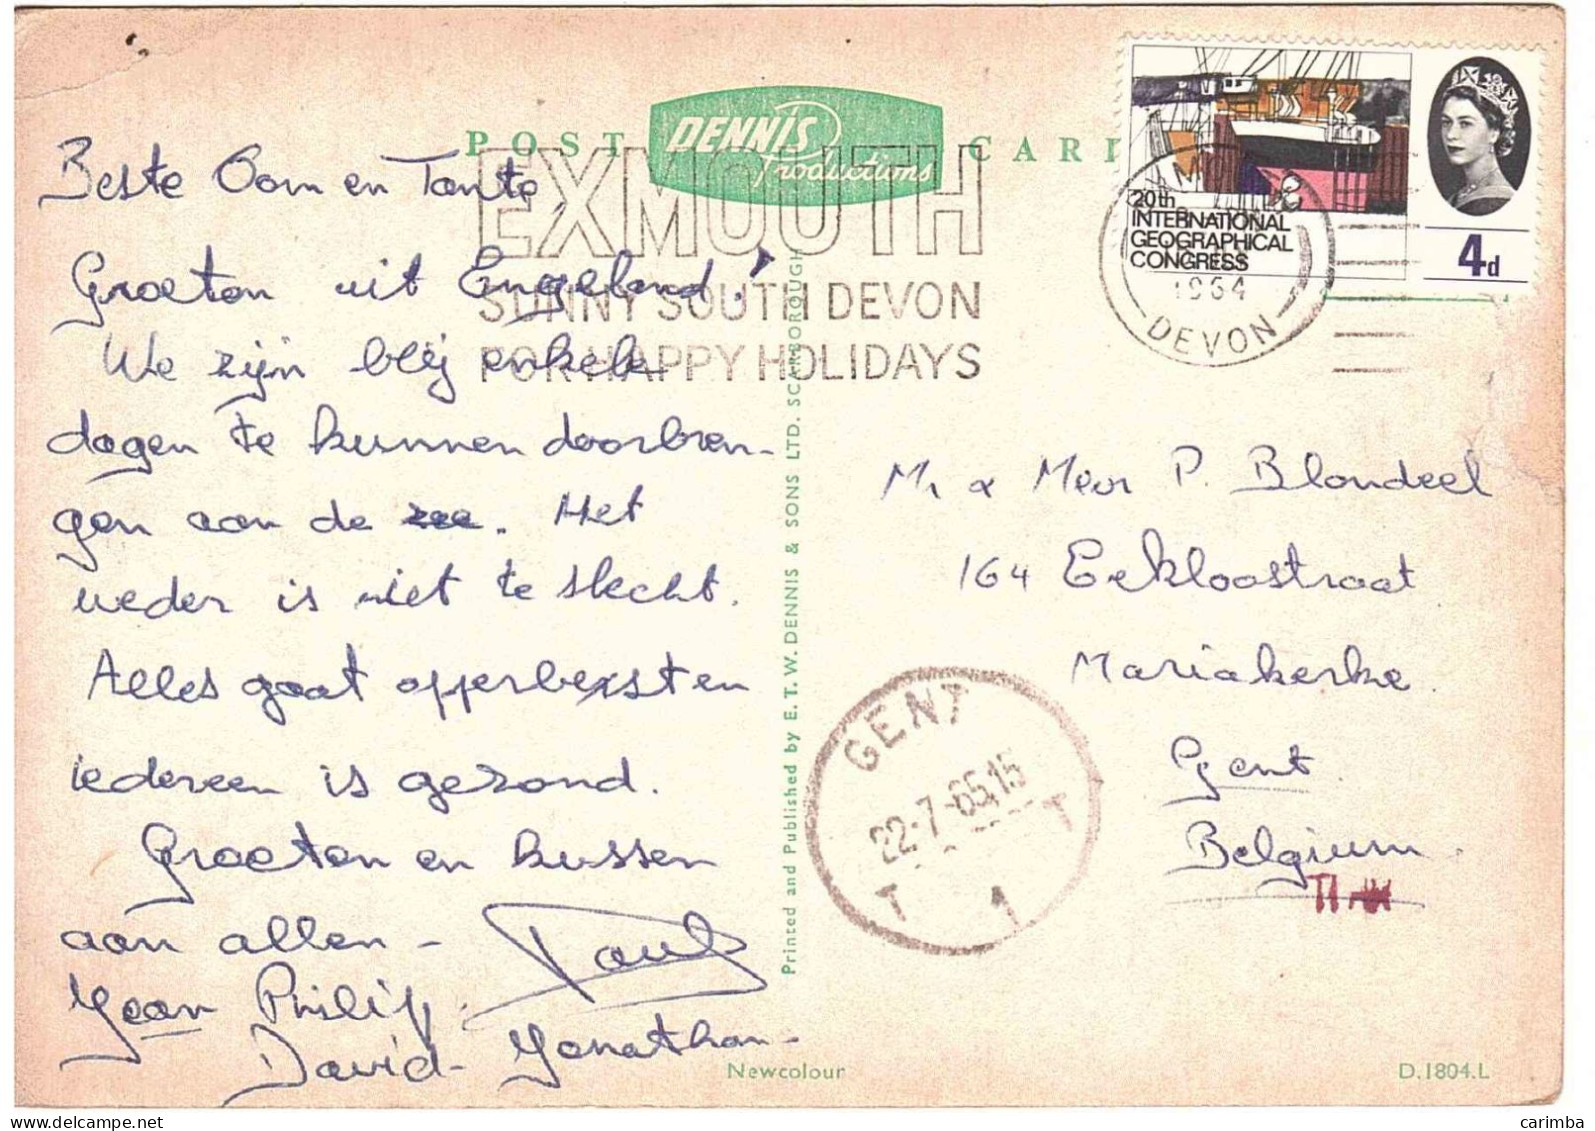 POST CARD
DENNIS
Productions
EXMOUTH
SUNNY SOUTH DEVON
FOR HAPPY HOLIDAYS
20th
INTERNATIONAL
GEOGRAPHICAL
CONGRESS
4d
1964
DEVON
Beste Oom en Tante,
Groeten uit Engeland!
We zijn blij enkele
dagen te kunnen doorbren-
gen aan de zee. Het
weder is niet te slecht.
Alles gaat opperbest en
iedereen is gezond.
Groeten en kussen
aan allen -
Paul
Jean Philip.
David - Jonathan -
Printed and Published by E. T. W. DENNIS & SONS LTD. SCARBOROUGH
Mr & Mevr P. Blondeel
164 Eekloostraat
Mariakerke
Gent
Belgium
GENT
22-7-65.15
T 1 T
Newcolour
D.1804.L
delcampe.net
carimba